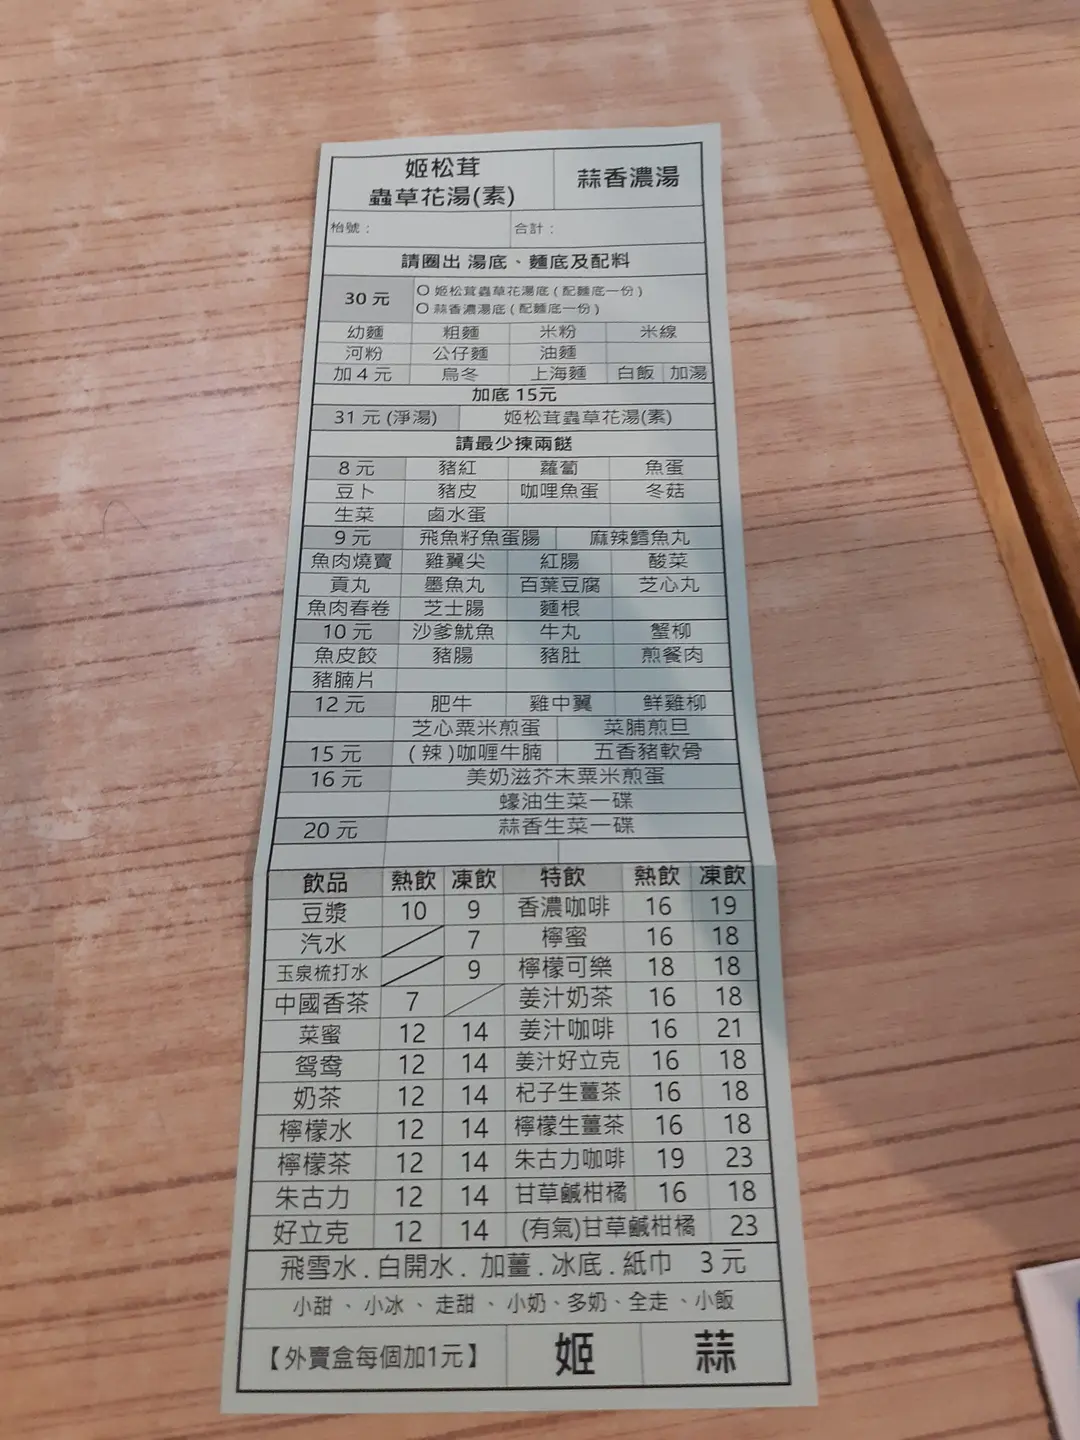 姬松茸 蒜香濃湯
蟲草花湯(素)
枱號： 合計：
請圈出 湯底、麵底及配料
30 元 O 姬松茸蟲草花湯底 ( 配麵底一份 )
O 蒜香濃湯底 ( 配麵底一份 )
幼麵 粗麵 米粉 米線
河粉 公仔麵 油麵
加 4 元 烏冬 上海麵 白飯 加湯
加底 15元
31 元 (淨湯) 姬松茸蟲草花湯(素)
請最少揀兩餸
8 元 豬紅 蘿蔔 魚蛋
豆卜 豬皮 咖哩魚蛋 冬菇
生菜 鹵水蛋
9 元 飛魚籽魚蛋腸 麻辣鱈魚丸
魚肉燒賣 雞翼尖 紅腸 酸菜
貢丸 墨魚丸 百葉豆腐 芝心丸
魚肉春卷 芝士腸 麵根
10 元 沙爹魷魚 牛丸 蟹柳
魚皮餃 豬腸 豬肚 煎餐肉
豬腩片
12 元 肥牛 雞中翼 鮮雞柳
芝心粟米煎蛋 菜脯煎旦
15 元 ( 辣 )咖喱牛腩 五香豬軟骨
16 元 美奶滋芥末粟米煎蛋
蠔油生菜一碟
20 元 蒜香生菜一碟
飲品 熱飲 凍飲 特飲 熱飲 凍飲
豆漿 10 9 香濃咖啡 16 19
汽水 7 檸蜜 16 18
玉泉梳打水 9 檸檬可樂 18 18
中國香茶 7 姜汁奶茶 16 18
菜蜜 12 14 姜汁咖啡 16 21
鴛鴦 12 14 姜汁好立克 16 18
奶茶 12 14 杞子生薑茶 16 18
檸檬水 12 14 檸檬生薑茶 16 18
檸檬茶 12 14 朱古力咖啡 19 23
朱古力 12 14 甘草鹹柑橘 16 18
好立克 12 14 (有氣)甘草鹹柑橘 23
飛雪水 . 白開水 . 加薑 . 冰底 . 紙巾 3 元
小甜 、 小冰 、 走甜 、 小奶、多奶、全走 、小飯
【外賣盒每個加1元】 姬 蒜